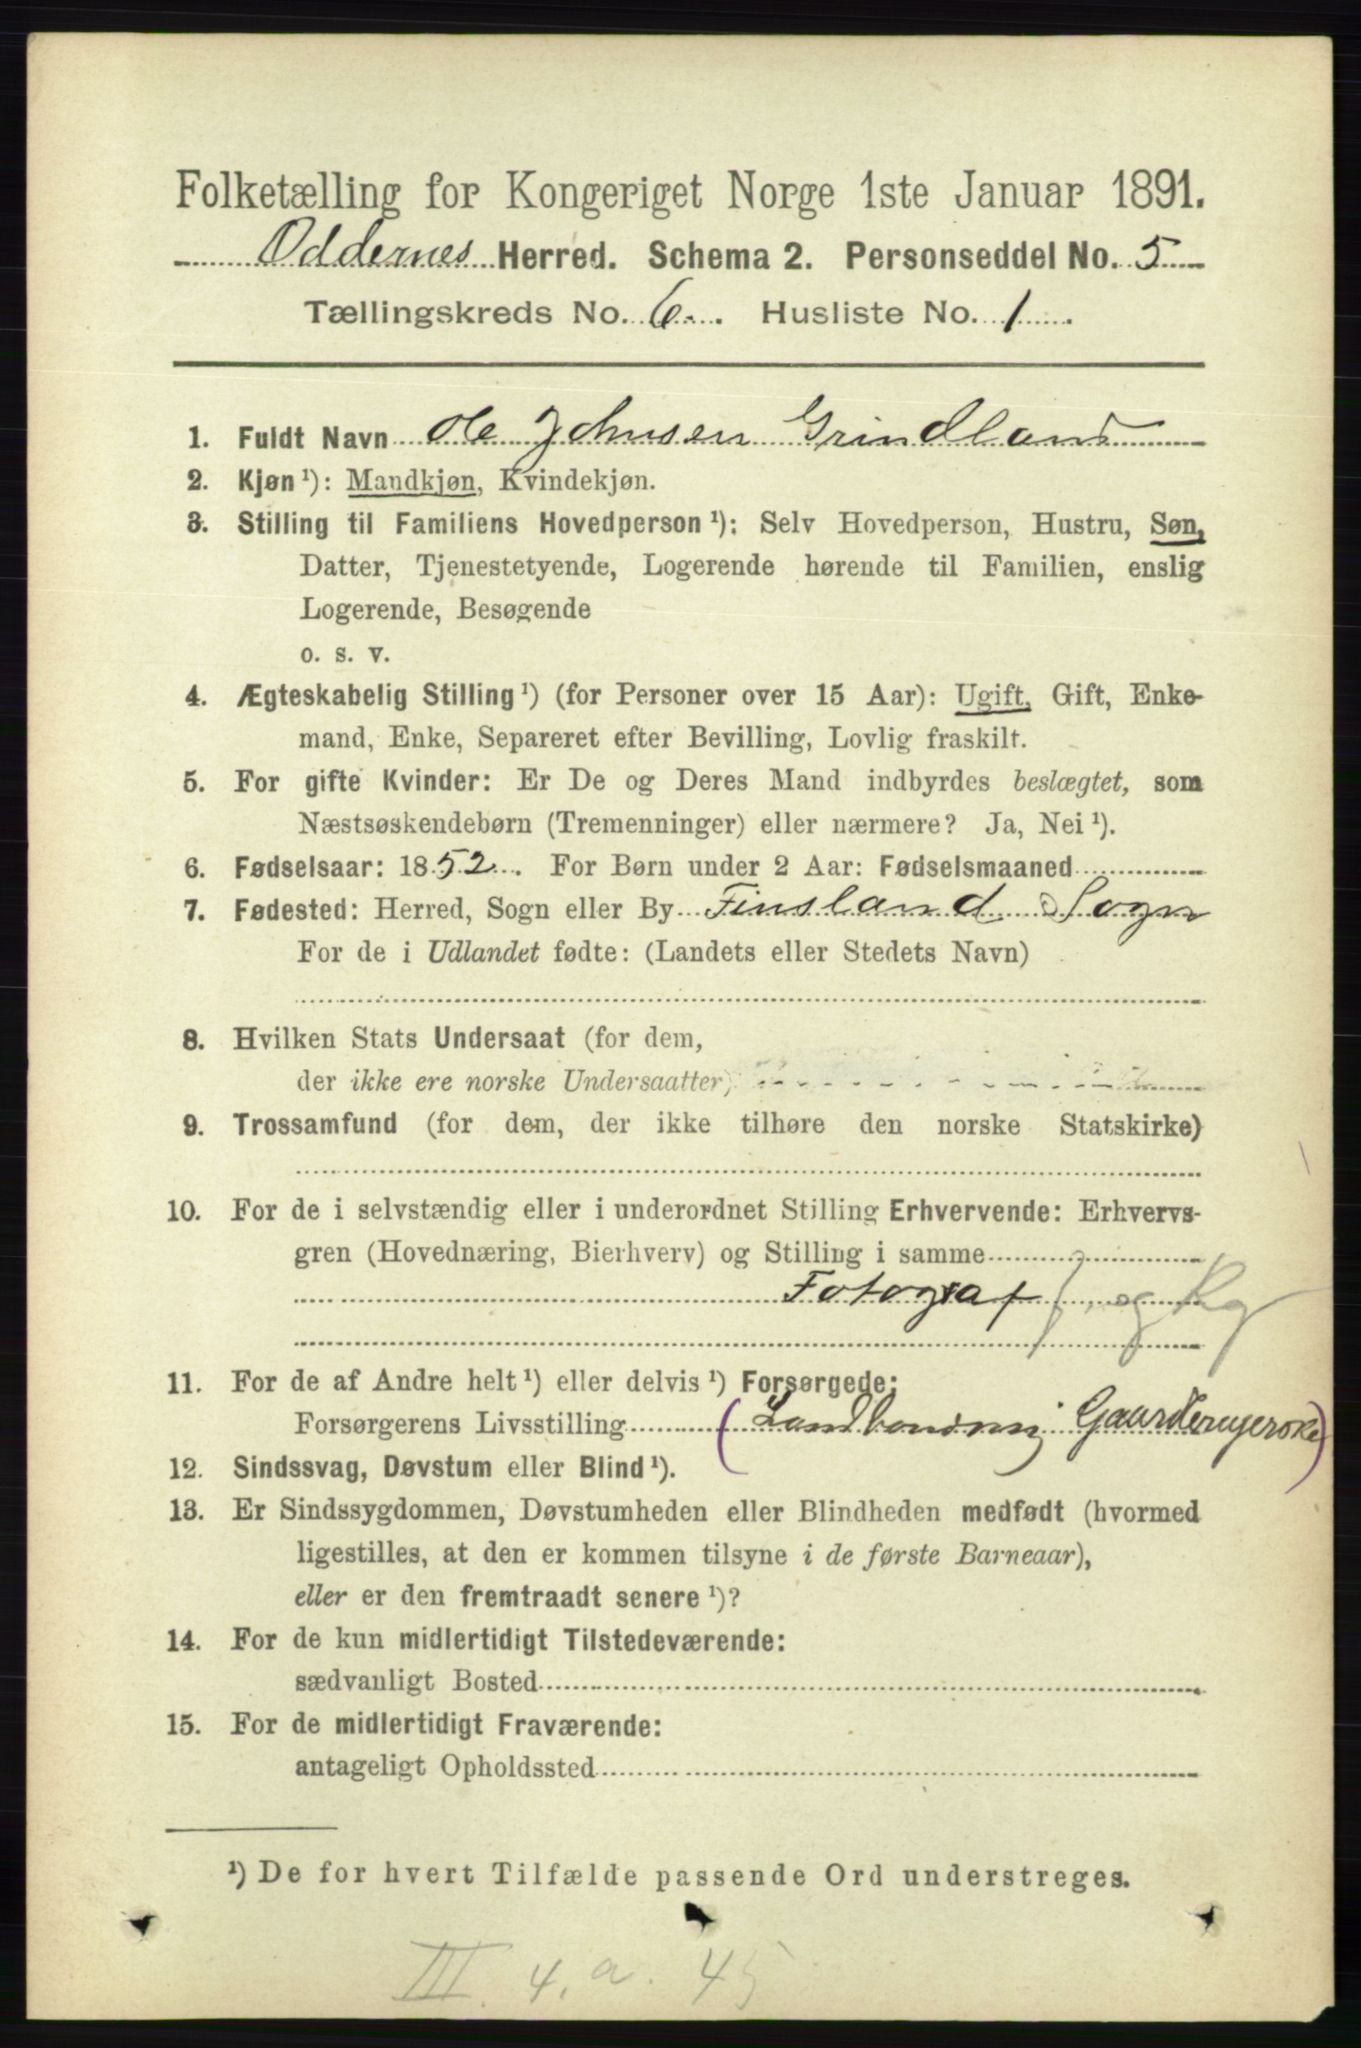 Folketælling for Kongeriget Norge 1ste Januar 1891.
Oddernes Herred. Schema 2. Personseddel No. 5
Tællingskreds No. 6. Husliste No. 1.
1. Fuldt Navn Ole Johnsen Grindland
2. Kjøn¹): Mandkjøn, Kvindekjøn.
3. Stilling til Familiens Hovedperson¹): Selv Hovedperson, Hustru, Søn,
Datter, Tjenestetyende, Logerende hørende til Familien, enslig
Logerende, Besøgende
o. s. v.
4. Ægteskabelig Stilling¹) (for Personer over 15 Aar): Ugift, Gift, Enke-
mand, Enke, Separeret efter Bevilling, Lovlig fraskilt.
5. For gifte Kvinder: Er De og Deres Mand indbyrdes beslægtet, som
Næstsøskendebørn (Tremenninger) eller nærmere? Ja, Nei¹).
6. Fødselsaar: 1852. For Børn under 2 Aar: Fødselsmaaned
7. Fødested: Herred, Sogn eller By Finsland Sogn
For de i Udlandet fødte: (Landets eller Stedets Navn)
8. Hvilken Stats Undersaat (for dem,
der ikke ere norske Undersaatter)
9. Trossamfund (for dem, der ikke tilhøre den norske Statskirke)
10. For de i selvstændig eller i underordnet Stilling Erhvervende: Erhvervs-
gren (Hovednæring, Bierhverv) og Stilling i samme
Fotograf f. og Rg
11. For de af Andre helt¹) eller delvis¹) Forsørgede:
Forsørgerens Livsstilling (                Gaardbrugerske)
12. Sindssvag, Døvstum eller Blind¹).
13. Er Sindssygdommen, Døvstumheden eller Blindheden medfødt (hvormed
ligestilles, at den er kommen tilsyne i de første Barneaar),
eller er den fremtraadt senere¹)?
14. For de kun midlertidigt Tilstedeværende:
sædvanligt Bosted
15. For de midlertidigt Fraværende:
antageligt Opholdssted
¹) De for hvert Tilfælde passende Ord understreges.
III. 4. a. 45